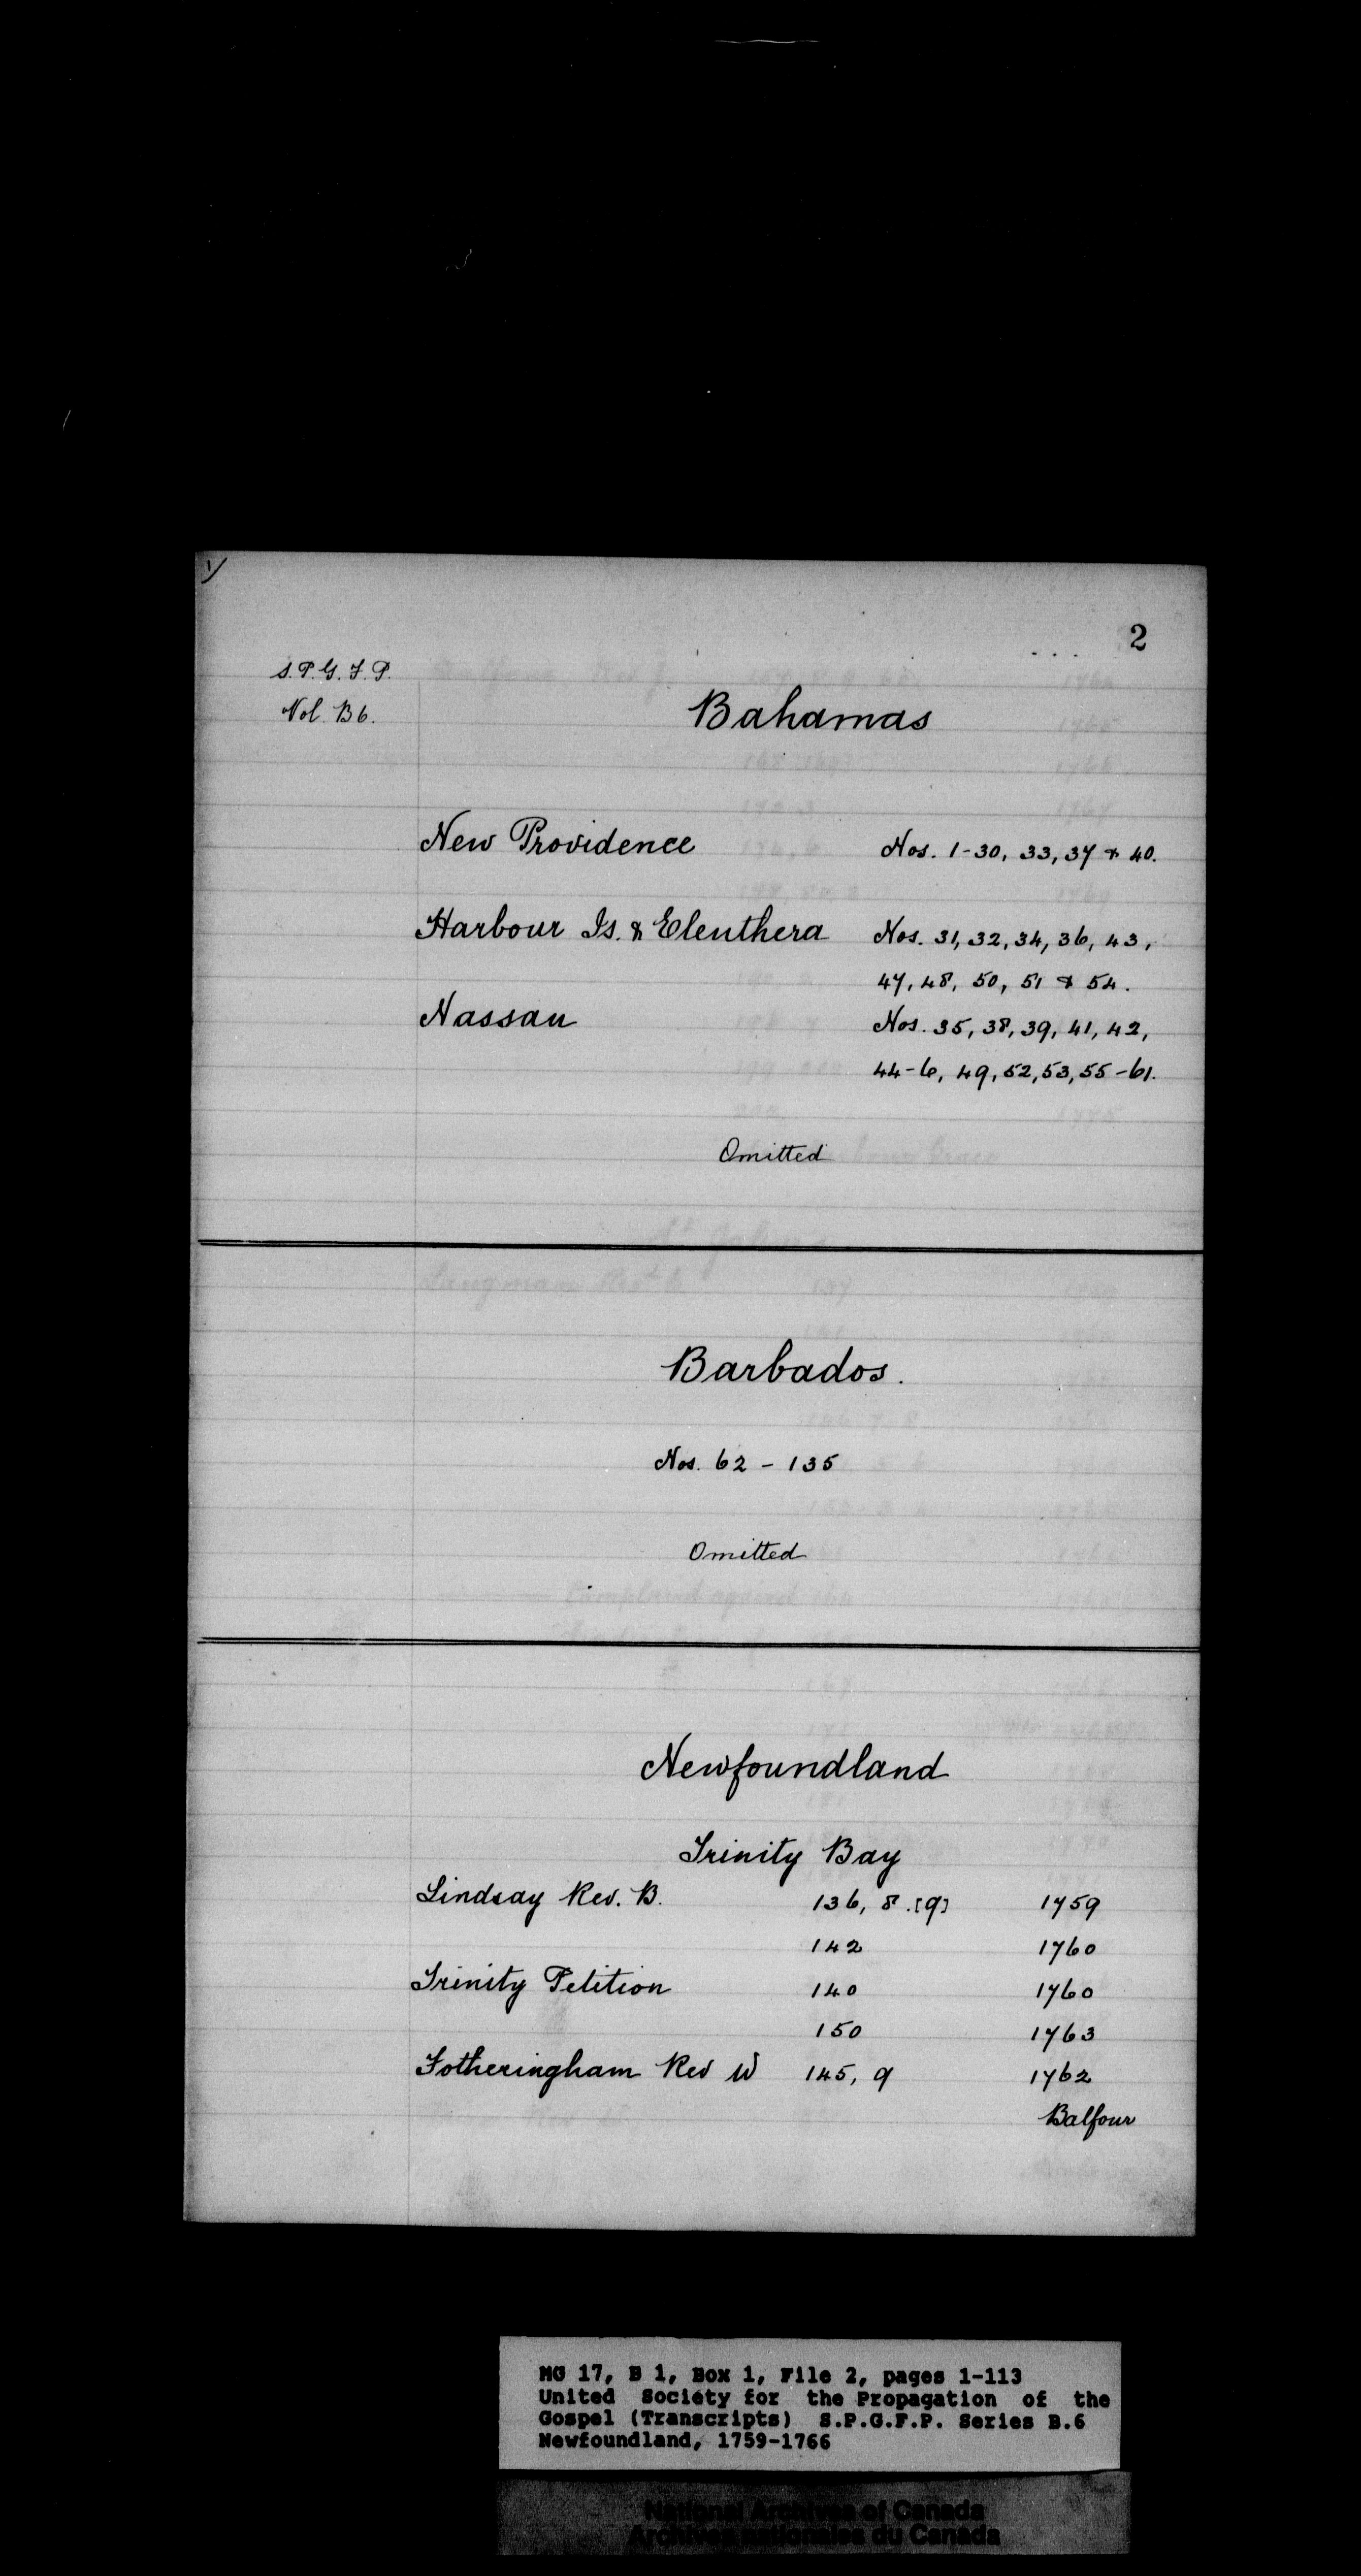 1/
2
S.P.G.F.P.
Vol. B6.
Bahamas
New Providence Nos. 1-30, 33, 37 & 40.
Harbour Is. & Eleuthera Nos. 31, 32, 34, 36, 43,
47, 48, 50, 51 & 54.
Nassau Nos. 35, 38, 39, 41, 42,
44-6, 49, 52, 53, 55-61.
Omitted
Barbados.
Nos. 62 - 135
Omitted
Newfoundland
Trinity Bay
Lindsay Rev. B. 136, 8.[9] 1759
142 1760
Trinity Petition 140 1760
150 1763
Fotheringham Rev W 145, 9 1762
Balfour
MG 17, B 1, Box 1, File 2, pages 1-113
United Society for the Propagation of the
Gospel (Transcripts) S.P.G.F.P. Series B.6
Newfoundland, 1759-1766
National Archives of Canada
Archives nationales du Canada